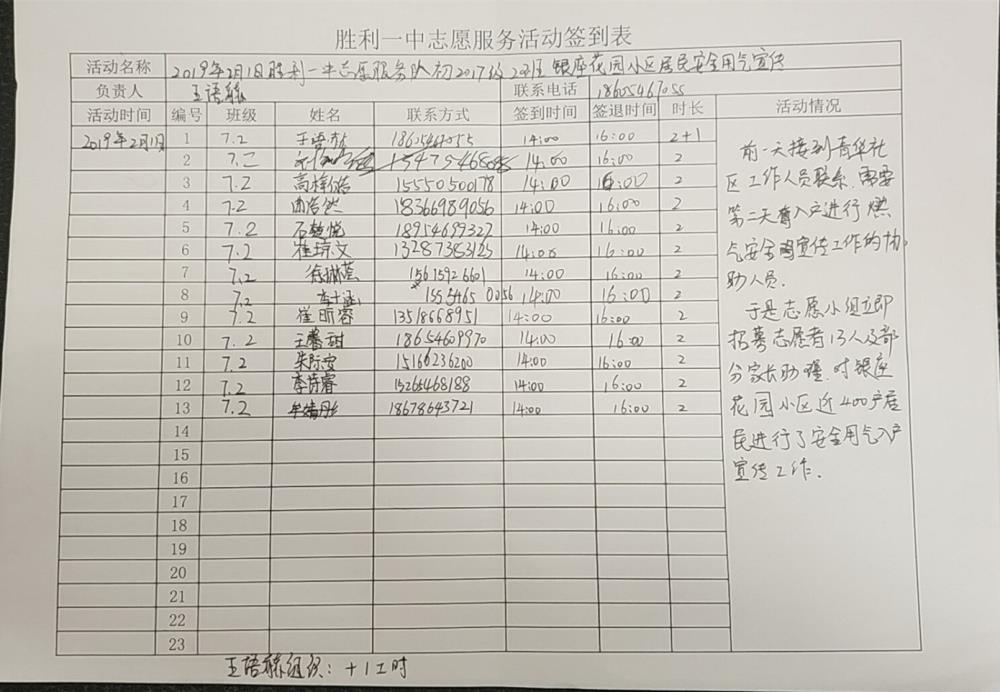 胜利一中志愿服务活动签到表
活动名称 2019年2月1日胜利一中志愿服务队初2017级2班 银座花园小区居民安全用气宣传
负责人 王语 联系电话 18605467055
活动时间 编号 班级 姓名 联系方式 签到时间 签退时间 时长 活动情况
2019年2月1日 1 7.2 王语 14:00 16:00 2+1
2 7.二 14:00 16:00 2
3 7.2 高梓 15550500178 14:00 16:00 2
4 7.2 浩然 18366989056 14:00 16:00 2
5 7.2 石 18954699327 14:00 16:00 2
6 7.2 崔琼文 13287383123 14:00 16:00 2
7 7.2 徐琳 15615926601 14:00 16:00 2
8 7.2 李 1555465 0056 14:00 16:00 2
9 7.2 崔昕蓉 13518668951 14:00 16:00 2
10 7.2 王馨甜 18654609970 14:00 16:00 2
11 7.2 朱际安 15166236200 14:00 16:00 2
12 7.2 李诗睿 15265468188 14:00 16:00 2
13 7.2 牟婧彤 18678643721 14:00 16:00 2
14
15
16
17
18
19
20
21
22
23
前一天接到青华社
区工作人员联系,需要
第二天入户进行燃
气安全宣传工作的协
助人员.
于是志愿小组立即
招募志愿者13人及部
分家长助理,对银座
花园小区近400户居
民进行了安全用气入户
宣传工作.
王语 组织:+1工时